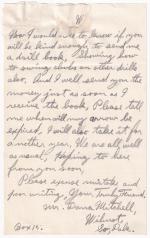 Now I would like to know if you
will be kind enough to send me
a drill book, Showing how
to swing clubs or other drills
also. And I well send you the
money just as soon as I
receive the book, Please tell
me when will my arrow be
expired, I will also take it for
another year. We are all well
as usual, Hoping to hear
from you soon.
Please excuse mistake and
pen writing, Your truly friend,
Mr. Mitchell,
Wilmot,
Box 12. So. Dak.